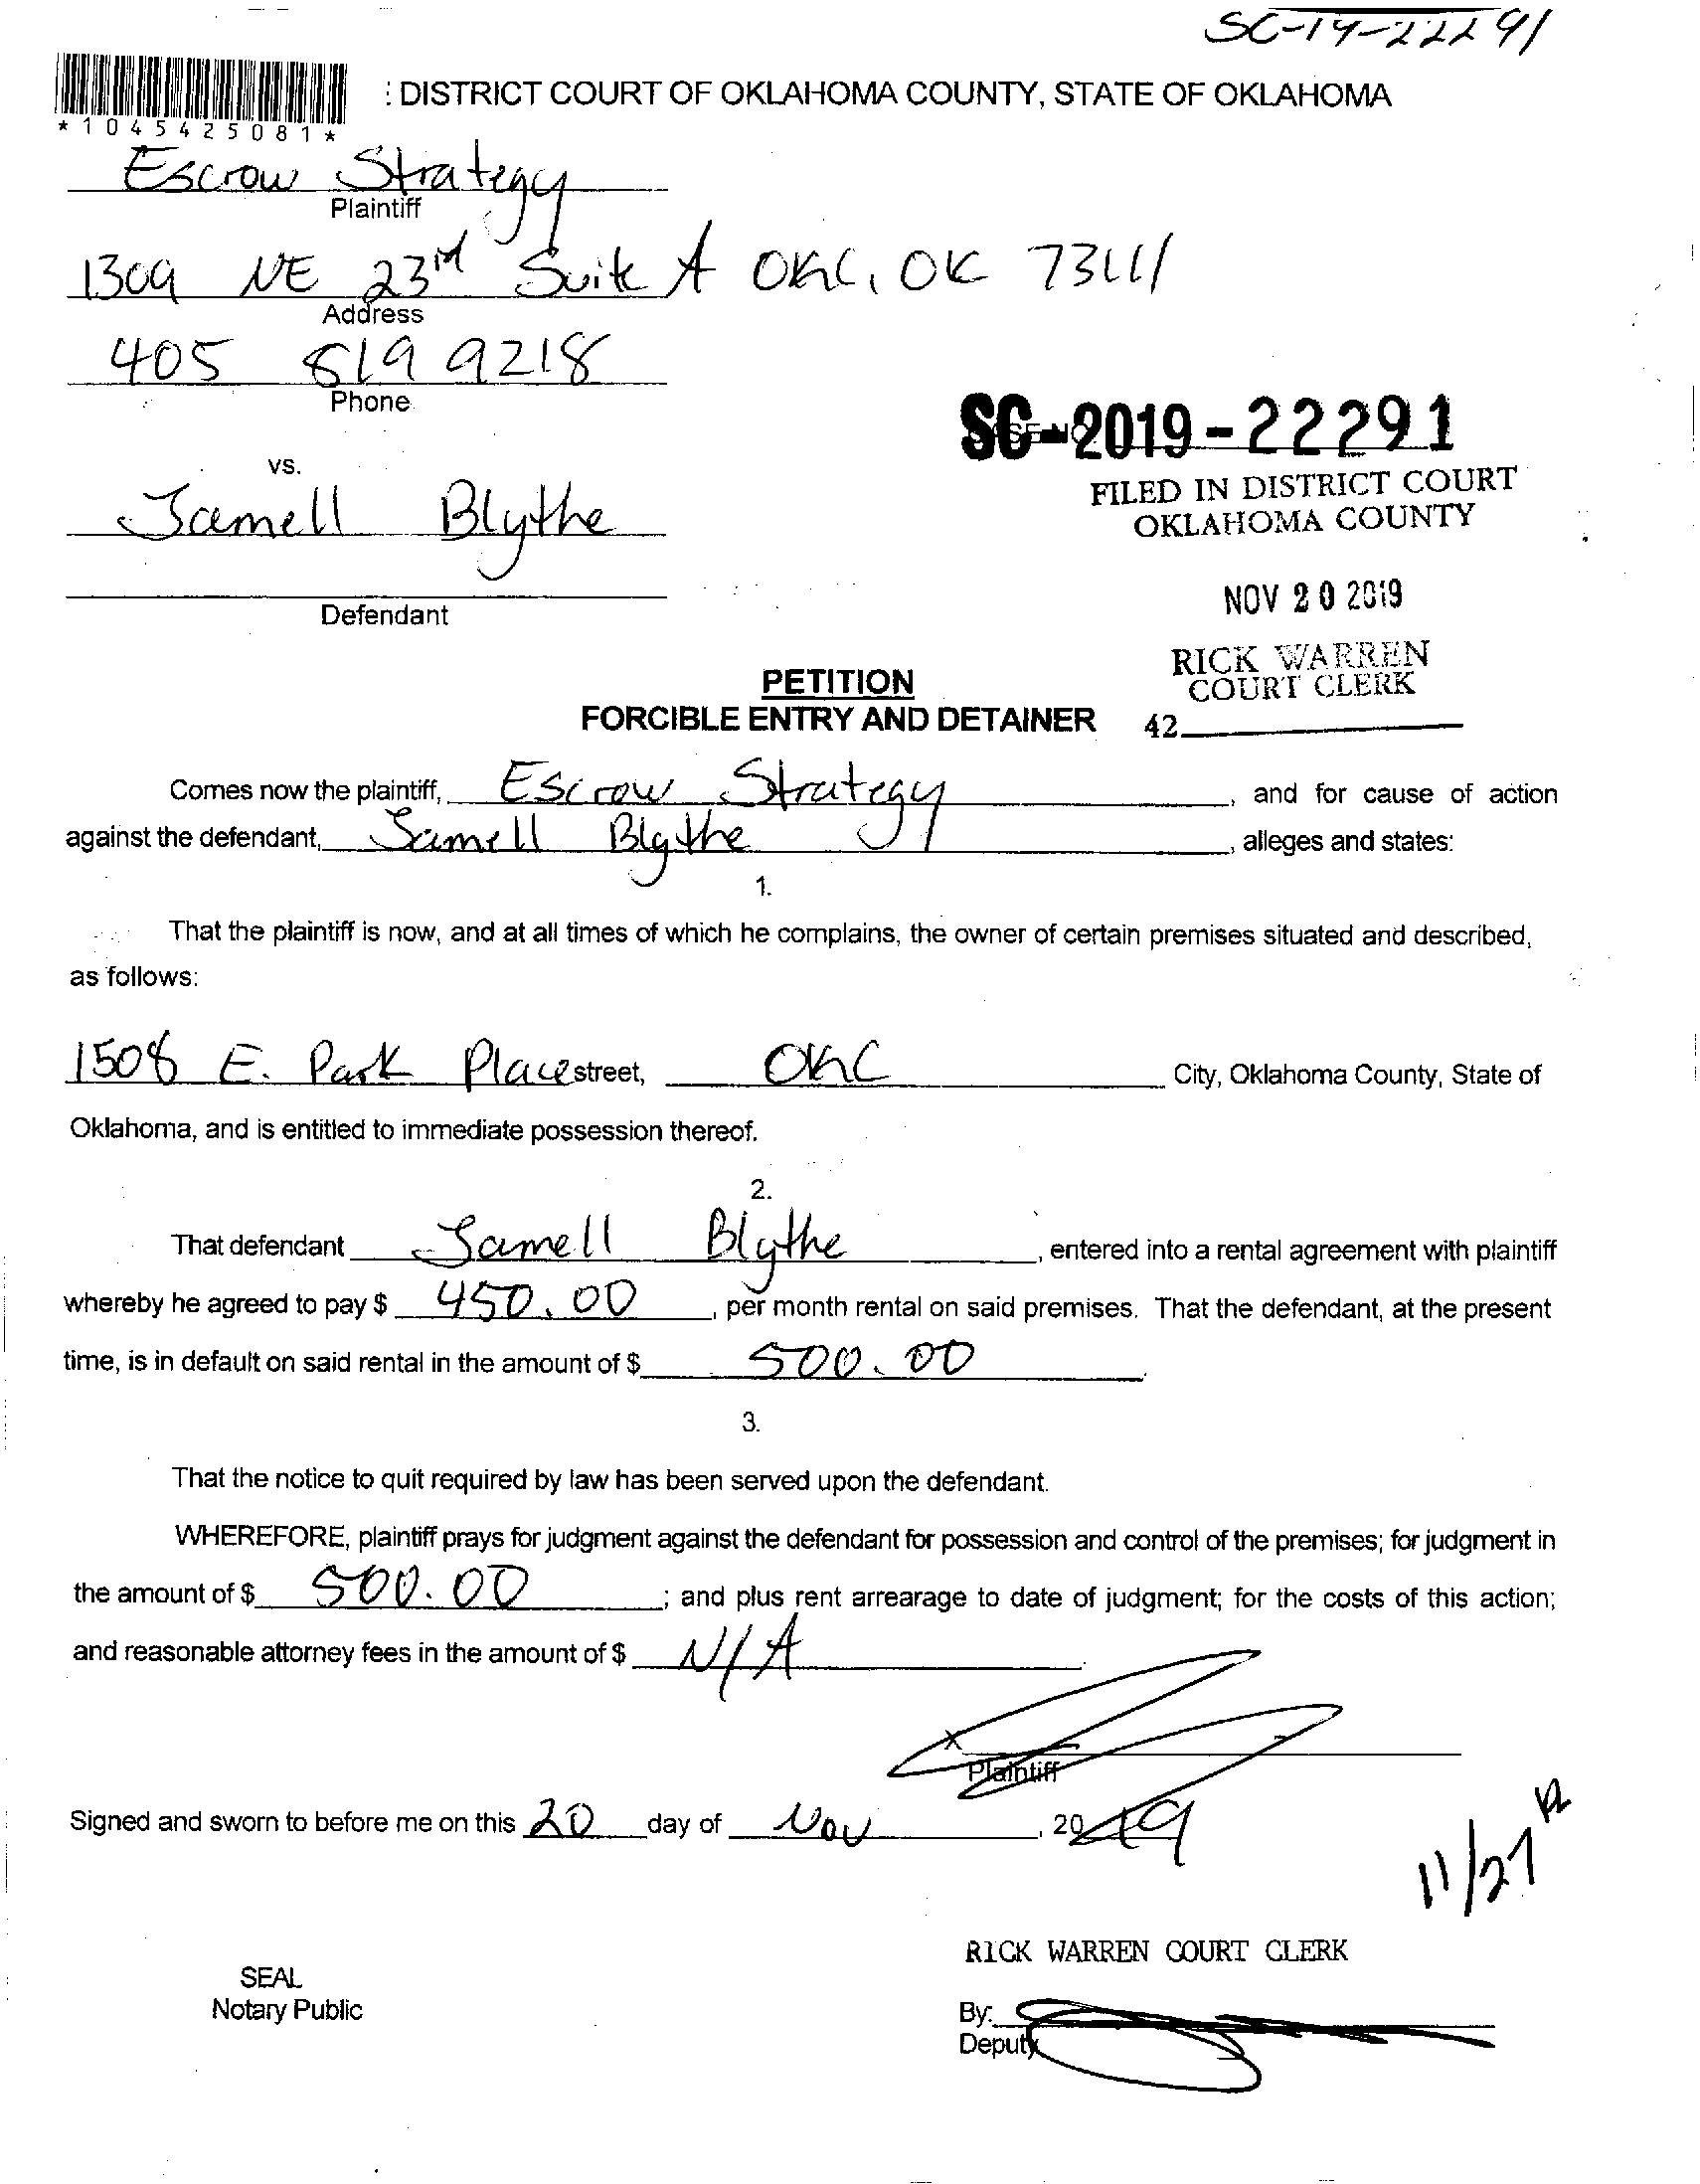 SC-19-22291
: DISTRICT COURT OF OKLAHOMA COUNTY, STATE OF OKLAHOMA
*1045425081*
Escrow Strategy
Plaintiff
1309 NE 23rd Suite A OKC, OK 73111
Address
405 819 9218
Phone
SC-2019-22291
vs.
FILED IN DISTRICT COURT
OKLAHOMA COUNTY
Jamell Blythe
NOV 20 2019
Defendant
RICK WARREN
COURT CLERK
PETITION
FORCIBLE ENTRY AND DETAINER
42
Comes now the plaintiff, Escrow Strategy, and for cause of action
against the defendant, Jamell Blythe, alleges and states:
1.
That the plaintiff is now, and at all times of which he complains, the owner of certain premises situated and described,
as follows:
1508 E. Park Place street, OKC City, Oklahoma County, State of
Oklahoma, and is entitled to immediate possession thereof.
2.
That defendant Jamell Blythe, entered into a rental agreement with plaintiff
whereby he agreed to pay $ 450.00, per month rental on said premises. That the defendant, at the present
time, is in default on said rental in the amount of $ 500.00.
3.
That the notice to quit required by law has been served upon the defendant.
WHEREFORE, plaintiff prays for judgment against the defendant for possession and control of the premises; for judgment in
the amount of $ 500.00; and plus rent arrearage to date of judgment; for the costs of this action;
and reasonable attorney fees in the amount of $ N/A
x
Plaintiff
Signed and sworn to before me on this 20 day of Nov, 2019
11/27
RICK WARREN COURT CLERK
SEAL
Notary Public
By:
Deputy